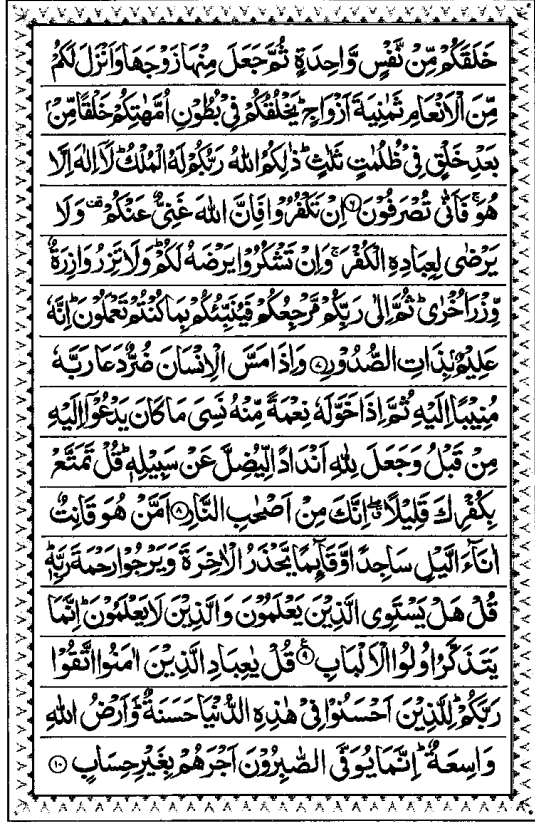 خَلَقَكُمْ مِّنْ نَّفْسٍ وَّاحِدَةٍ ثُمَّ جَعَلَ مِنْهَا زَوْجَهَا وَاَنْزَلَ لَكُمْ
مِّنَ الْاَنْعَامِ ثَمٰنِيَةَ اَزْوَاجٍ ؕ يَخْلُقُكُمْ فِيْ بُطُوْنِ اُمَّهٰتِكُمْ خَلْقًا مِّنْۢ
بَعْدِ خَلْقٍ فِيْ ظُلُمٰتٍ ثَلٰثٍ ؕ ذٰلِكُمُ اللّٰهُ رَبُّكُمْ لَهُ الْمُلْكُ ؕ لَاۤ اِلٰهَ اِلَّا
هُوَ ۚ فَاَنّٰى تُصْرَفُوْنَ ۝۶ اِنْ تَكْفُرُوْا فَاِنَّ اللّٰهَ غَنِيٌّ عَنْكُمْ ۫ وَلَا
يَرْضٰى لِعِبَادِهِ الْكُفْرَ ۚ وَاِنْ تَشْكُرُوْا يَرْضَهُ لَكُمْ ؕ وَلَا تَزِرُ وَازِرَةٌ
وِّزْرَ اُخْرٰى ؕ ثُمَّ اِلٰى رَبِّكُمْ مَّرْجِعُكُمْ فَيُنَبِّئُكُمْ بِمَا كُنْتُمْ تَعْمَلُوْنَ ؕ اِنَّهٗ
عَلِيْمٌۢ بِذَاتِ الصُّدُوْرِ ۝۷ وَاِذَا مَسَّ الْاِنْسَانَ ضُرٌّ دَعَا رَبَّهٗ
مُنِيْبًا اِلَيْهِ ثُمَّ اِذَا خَوَّلَهٗ نِعْمَةً مِّنْهُ نَسِيَ مَا كَانَ يَدْعُوْۤا اِلَيْهِ
مِنْ قَبْلُ وَجَعَلَ لِلّٰهِ اَنْدَادًا لِّيُضِلَّ عَنْ سَبِيْلِهٖ ؕ قُلْ تَمَتَّعْ
بِكُفْرِكَ قَلِيْلًا ۖ اِنَّكَ مِنْ اَصْحٰبِ النَّارِ ۝۸ اَمَّنْ هُوَ قَانِتٌ
اٰنَآءَ الَّيْلِ سَاجِدًا وَّقَآئِمًا يَّحْذَرُ الْاٰخِرَةَ وَيَرْجُوْا رَحْمَةَ رَبِّهٖ ؕ
قُلْ هَلْ يَسْتَوِي الَّذِيْنَ يَعْلَمُوْنَ وَالَّذِيْنَ لَا يَعْلَمُوْنَ ؕ اِنَّمَا
يَتَذَكَّرُ اُولُوا الْاَلْبَابِ ۝۹ قُلْ يٰعِبَادِ الَّذِيْنَ اٰمَنُوا اتَّقُوْا
رَبَّكُمْ ؕ لِلَّذِيْنَ اَحْسَنُوْا فِيْ هٰذِهِ الدُّنْيَا حَسَنَةٌ ؕ وَاَرْضُ اللّٰهِ
وَاسِعَةٌ ؕ اِنَّمَا يُوَفَّى الصّٰبِرُوْنَ اَجْرَهُمْ بِغَيْرِ حِسَابٍ ۝۱۰